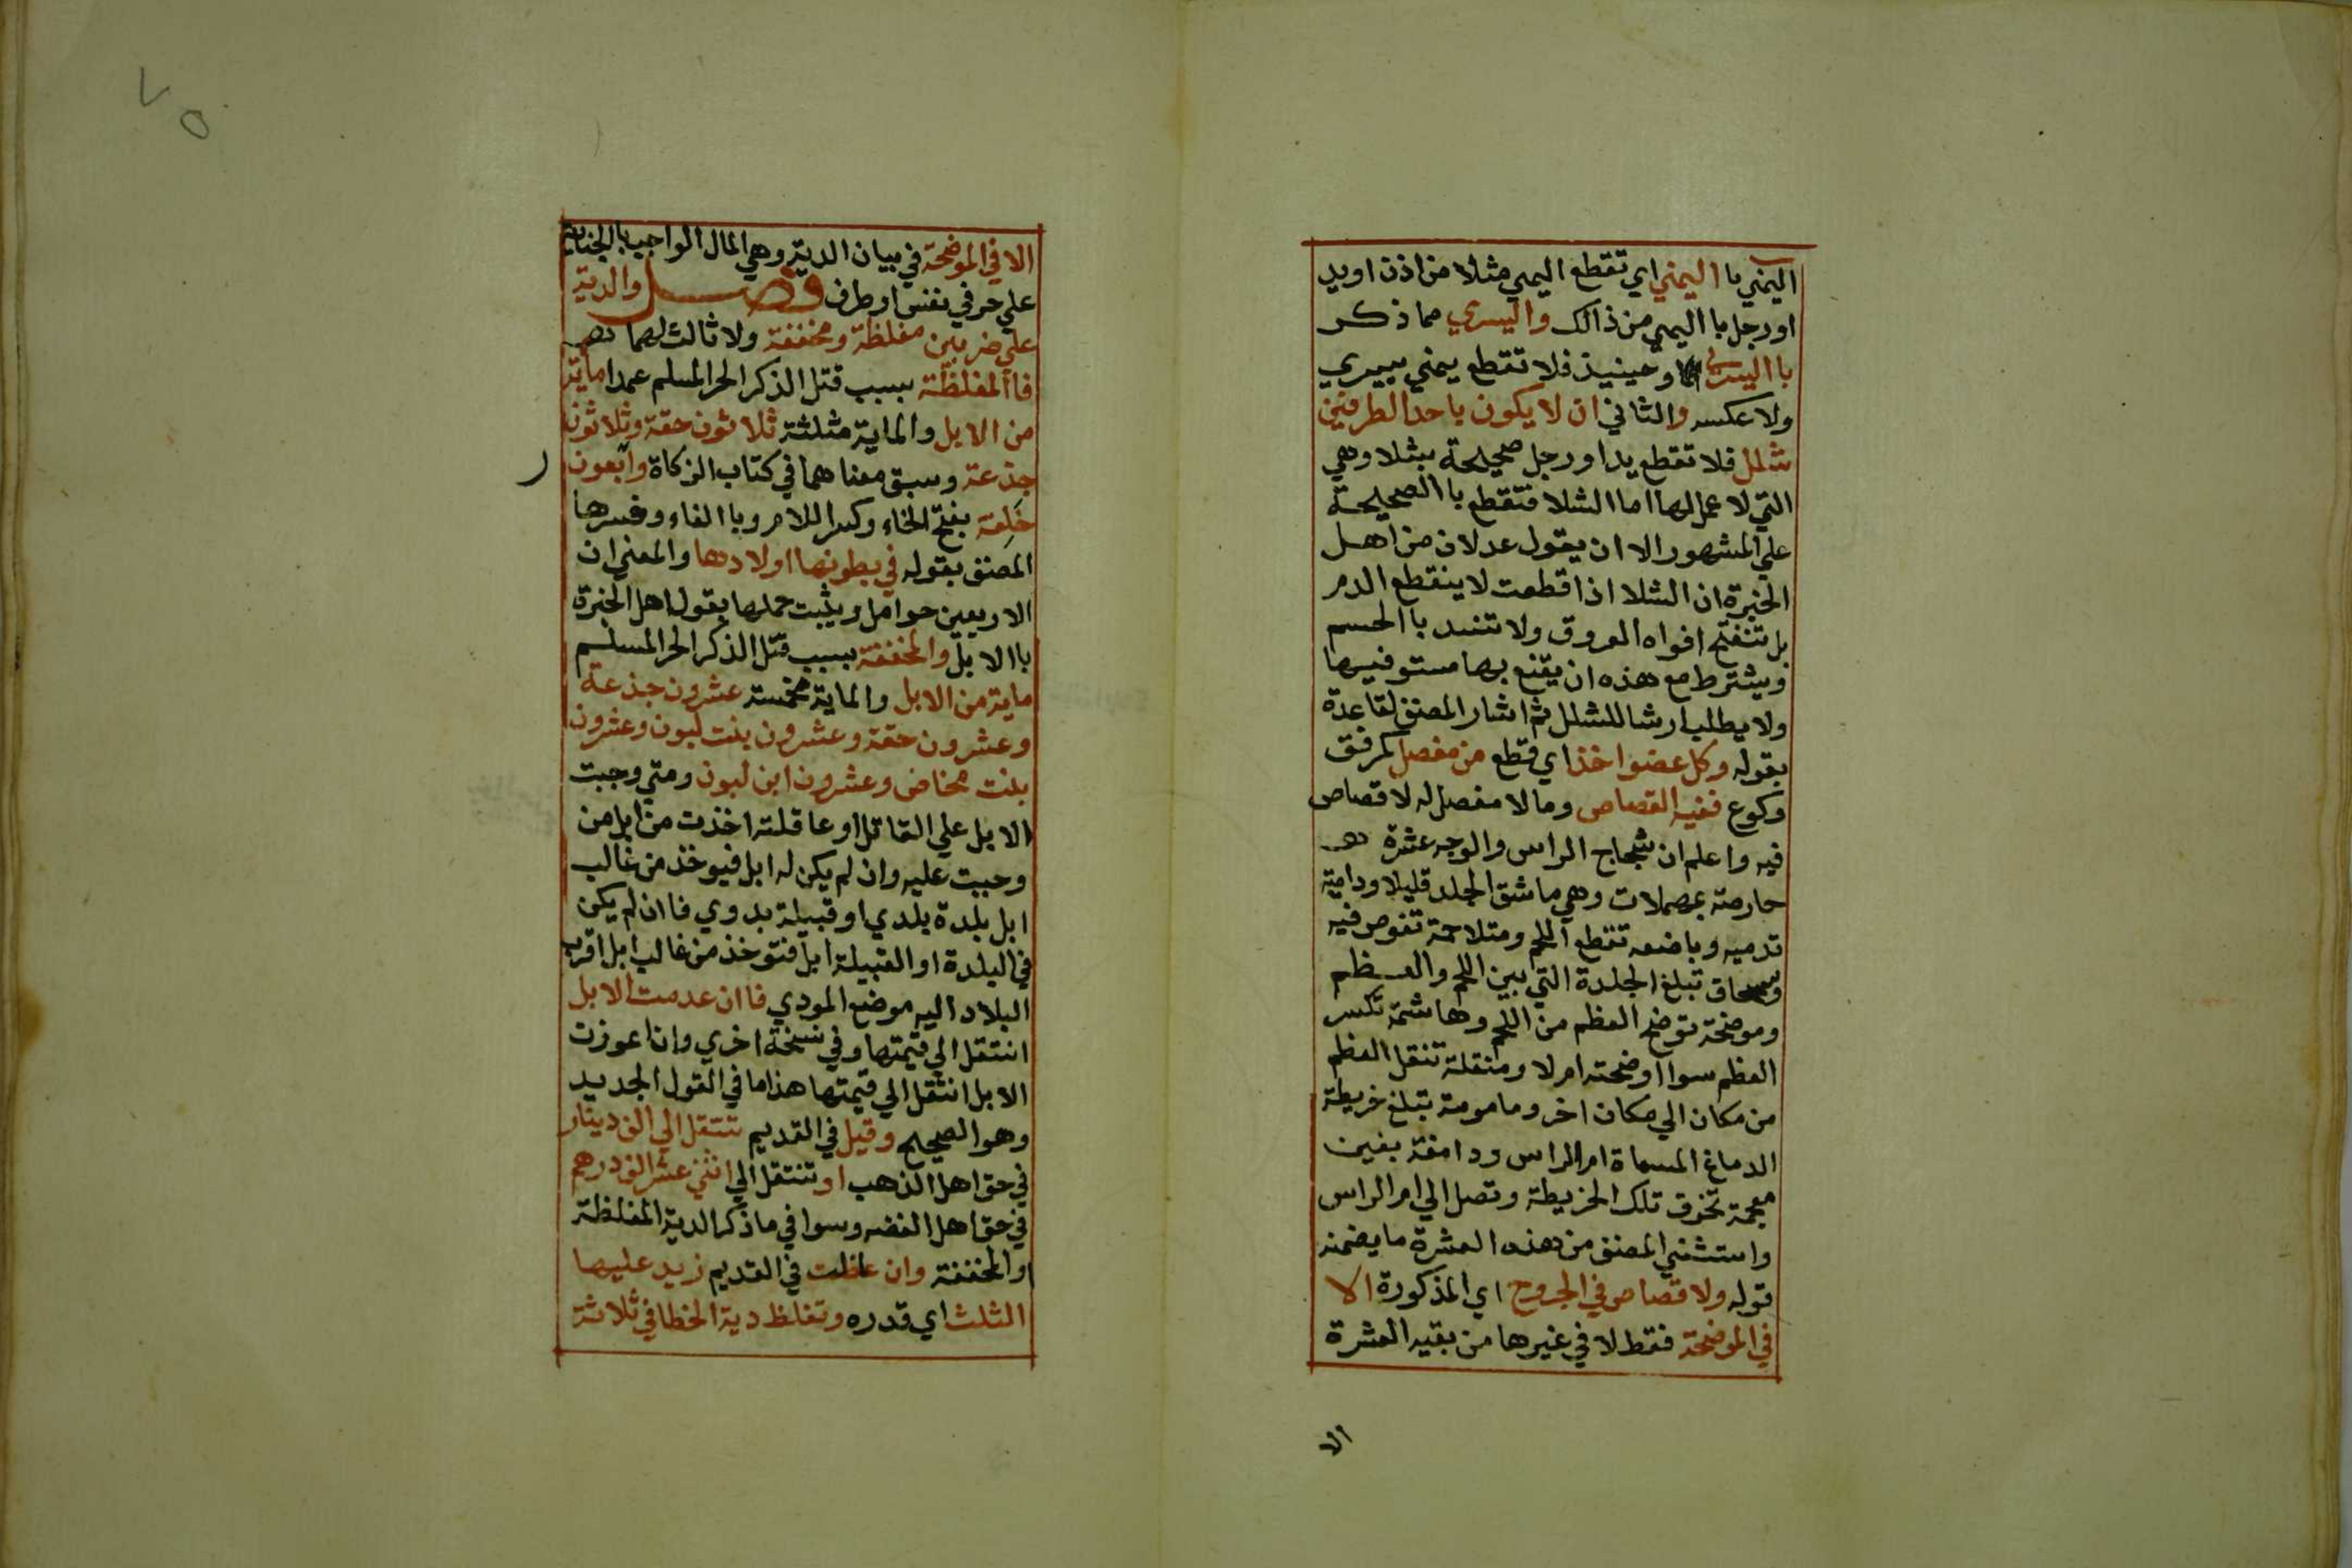 اليمني باا اليمني اي تقطع اليمي مثلا من اذن اويد
اورجل باا اليمي من ذالك واليسري مما ذكر
باا اليسري وحينيذ فلا تقطع يمني بيسري
ولا عكسه والثاني ان لا يكون باحد الطرفين
شلل فلا تقطع يد اورجل صحيحة بشلا وهي
التي لا عمل لها اما الشلا فتقطع باا الصحيحة
علي المشهور الا ان يقول عدلان من اهل
الخبرة ان الشلا اذا قطعت لا ينقطع الدم
بل تنفتح افواه العروق ولا تنسد باا الحسم
ويشترط مع هذه ان يقنع بها مستوفيها
ولا يطلب ارشا للشلل ثم اشار المصنف لقاعدة
بقوله وكل عضو اخذ اي قطع من مفصل كمرفق
وكوع ففيه القصاص وما لا مفصل له لا قصاص
فيه واعلم ان شجاج الراس والوجه عشرة
حارصة بمهملات وهي ما شق الجلد قليلا ودامية
تدميه وباضعه تقطع اللحم ومتلاحمة تغوص فيه
وسمحاق تبلغ الجلدة التي بين اللحم والعظم
وموضحة توضح العظم من اللحم وهاشمة تكسر
العظم سوا اوضحته ام لا ومنقلة تنقل العظم
من مكان الي مكان اخر ومامومة تبلغ خريطة
الدماغ المسماة ام الراس ودامغة بغين
معجمة تخرق تلك الخريطة وتصل الي ام الراس
واستثني المصنف من هذه العشرة ما يضمنه
قوله ولا قصاص في الجروح اي المذكورة الا
في الموضحة فقط لا في غيرها من بقيه العشرة
الا
٧٥
الا في الموضحة في بيان الدية وهي المال الواجب باالجناية
علي حر في نفس اوطرف فصل والدية
علي ضربين مغلظة ومخففة ولا ثالث لهما
فاالمغلظة بسبب قتل الذكر الحر المسلم عمدا ماية
من الابل والماية مثلثة ثلاثون حقة وثلاثون
جذعة وسبق معناهما في كتاب الزكاة واربعون
خلفة بفتح الخاء وكسر اللام وباا الفاء وفسرها
المصنف بقوله في بطونها اولادها والمعني ان
الاربعين حوامل ويثبت حملها بقول اهل الخبرة
باا الابل والمخففة بسبب قتل الذكر الحر المسلم
ماية من الابل والماية مخمسة عشرون جذعة
وعشرون حقة وعشرون بنت لبون وعشرون
بنت مخاض وعشرون ابن لبون ومتي وجبت
الابل علي القاتل اوعاقلته اخذت من ابل من
وجبت عليه وان لم يكن له ابل فيوخذ من غالب
ابل بلدة بلدي اوقبيلة بدوي فاان لم يكن
في البلدة او القبيلة ابل فتوخذ من غالب ابل اقرب
البلاد اليه موضع المودي فاان عدمت الابل
انتقل الي قيمتها وفي نسخة اخري وان اعوزت
الابل انتقل الي قيمتها هذا ما في القول الجديد
وهو الصحيح وقيل في القديم تنتقل الي الف دينار
في حق اهل الذهب او تنتقل الي اثني عشر الف درهم
في حق اهل الفضه وسوا في ما ذكر الدية المغلظة
والمخففة وان غلظت في القديم زيد عليها
الثلث اي قدره وتغلظ دية الخطا في ثلاثة